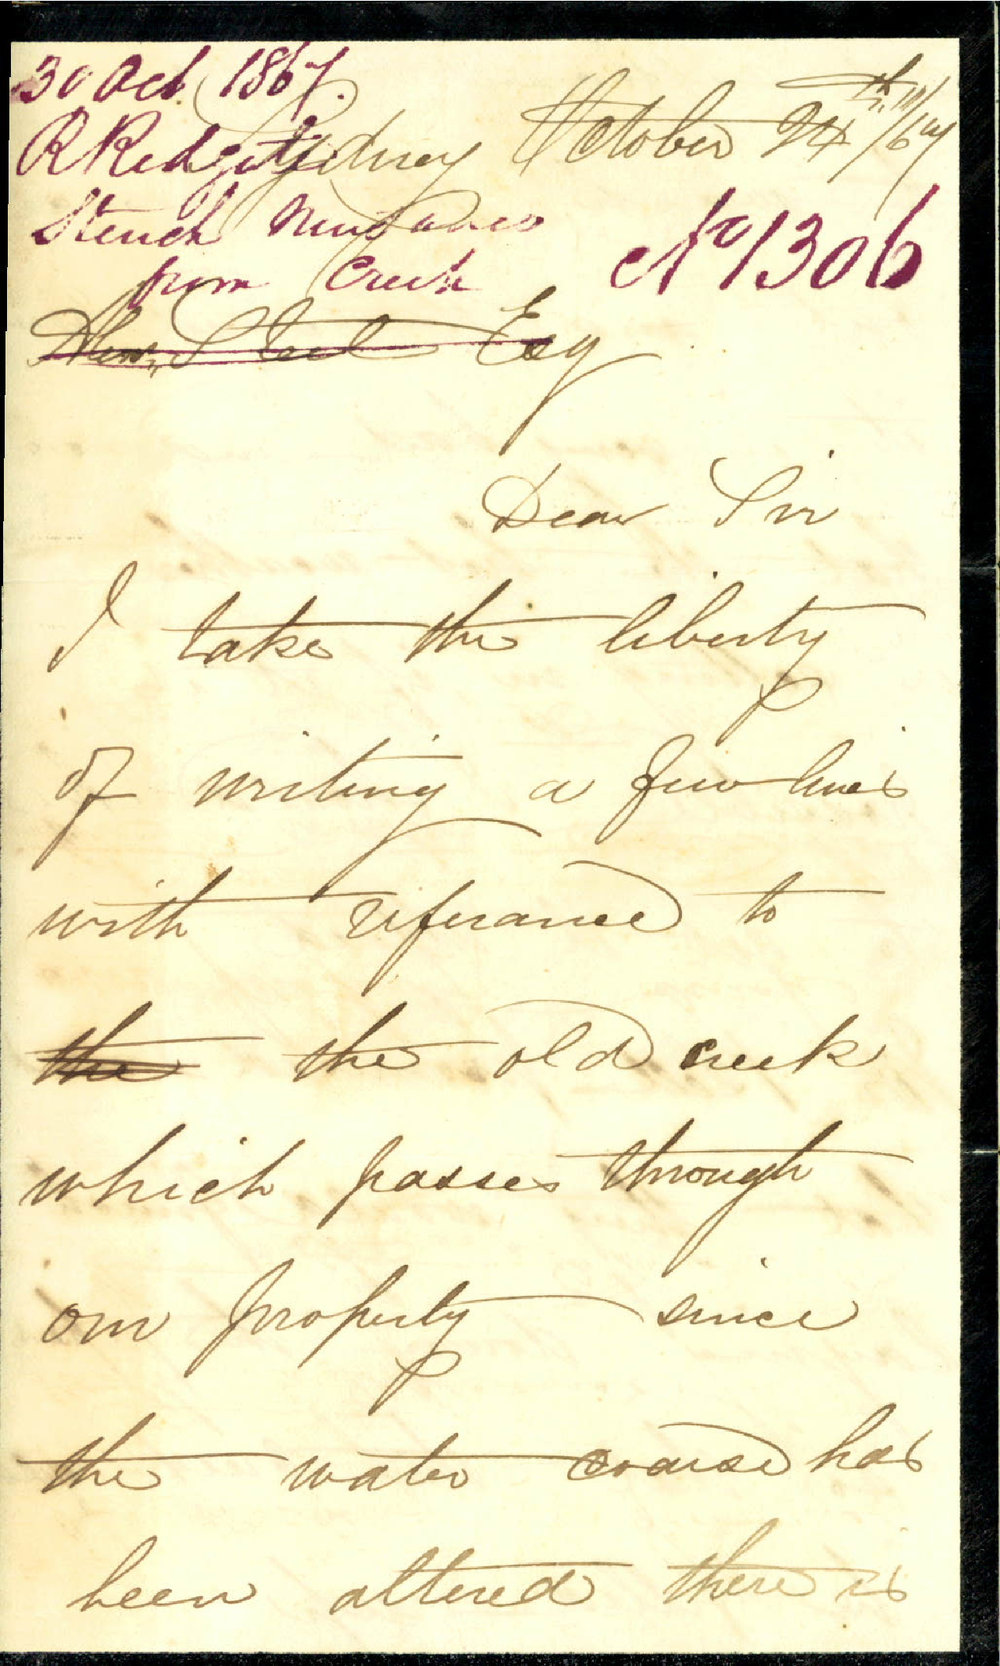 30 Oct 1867.
Sydney October 24th /67
R Ridge
Stench Nuisance
from Creek
No 1306
Steel Esq
Dear Sir
I take the liberty
of writing a few lines
with referance to
the the old creek
which passes through
our property since
the water coarse has
been altered there is